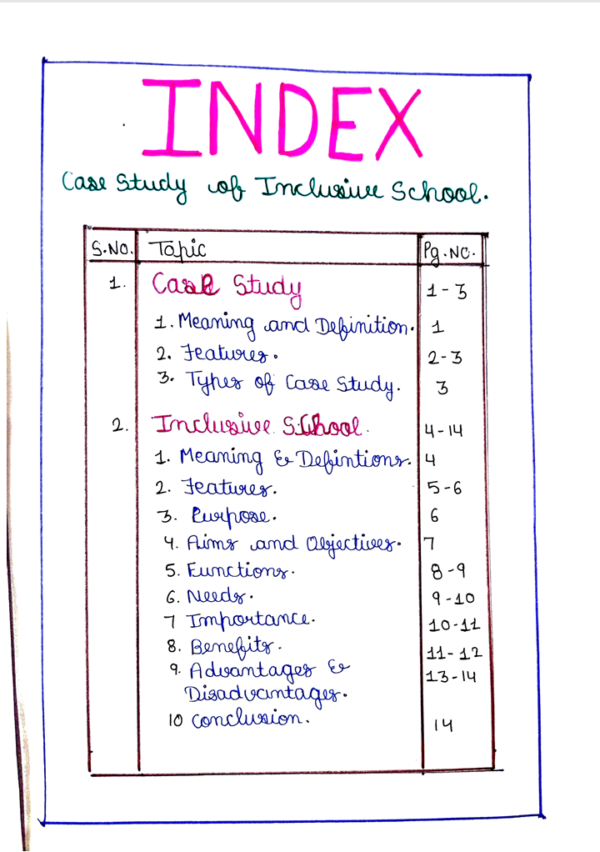 INDEX
Case Study of Inclusive School.
S.NO. Topic Pg.NO.
1. Case Study 1-3
1. Meaning and Definition. 1
2. Features. 2-3
3. Types of Case Study. 3
2. Inclusive School. 4-14
1. Meaning & Defintions. 4
2. Features. 5-6
3. Purpose. 6
4. Aims and Objectives. 7
5. Functions. 8-9
6. Needs. 9-10
7 Importance. 10-11
8. Benefits. 11-12
9. Advantages & 13-14
Disadvantages.
10 Conclusion. 14